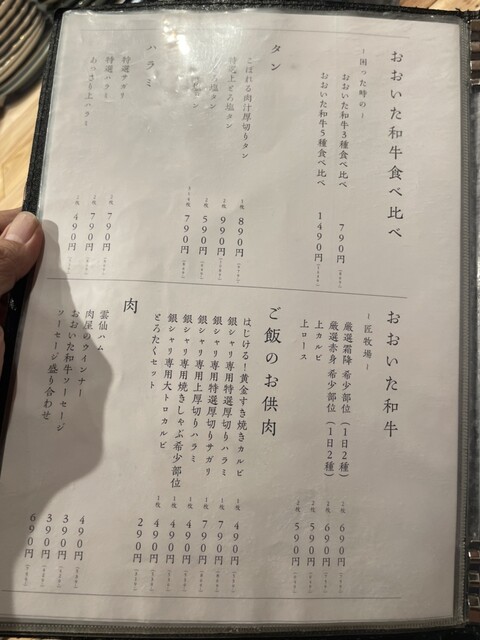 おおいた和牛食べ比べ
ー困った時のー
おおいた和牛3種食べ比べ 790円
おおいた和牛5種食べ比べ 1490円
タン
こぼれる肉汁厚切りタン 1枚 890円
特選上とろ塩タン 2枚 990円
ろ塩タン 2枚 590円
790円
ハラミ
特選サガリ 2枚 790円
特選ハラミ 2枚 790円
あっさり上ハラミ 2枚 490円
おおいた和牛
ー匠牧場ー
厳選霜降 希少部位（1日2種） 2枚 690円
厳選赤身 希少部位（1日2種） 2枚 690円
上カルビ 2枚 590円
上ロース 2枚 590円
ご飯のお供肉
はじける！黄金すき焼きカルビ 1枚 490円
銀シャリ専用特選厚切りハラミ 1枚 790円
銀シャリ専用特選厚切りサガリ 1枚 790円
銀シャリ専用上厚切りハラミ 1枚 490円
銀シャリ専用焼きしゃぶ希少部位 1枚 490円
銀シャリ専用大トロカルビ 1枚 490円
とろたくセット 290円
肉
雲仙ハム 490円
肉屋のウインナー 390円
おおいた和牛ソーセージ 390円
ソーセージ盛り合わせ 690円